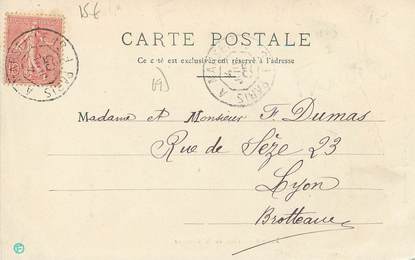 15€
CARTE POSTALE
Ce côté est exclusivement réservé à l'adresse
Madame et Monsieur F. Dumas
Rue de Sèze 23
Lyon
Brotteaux